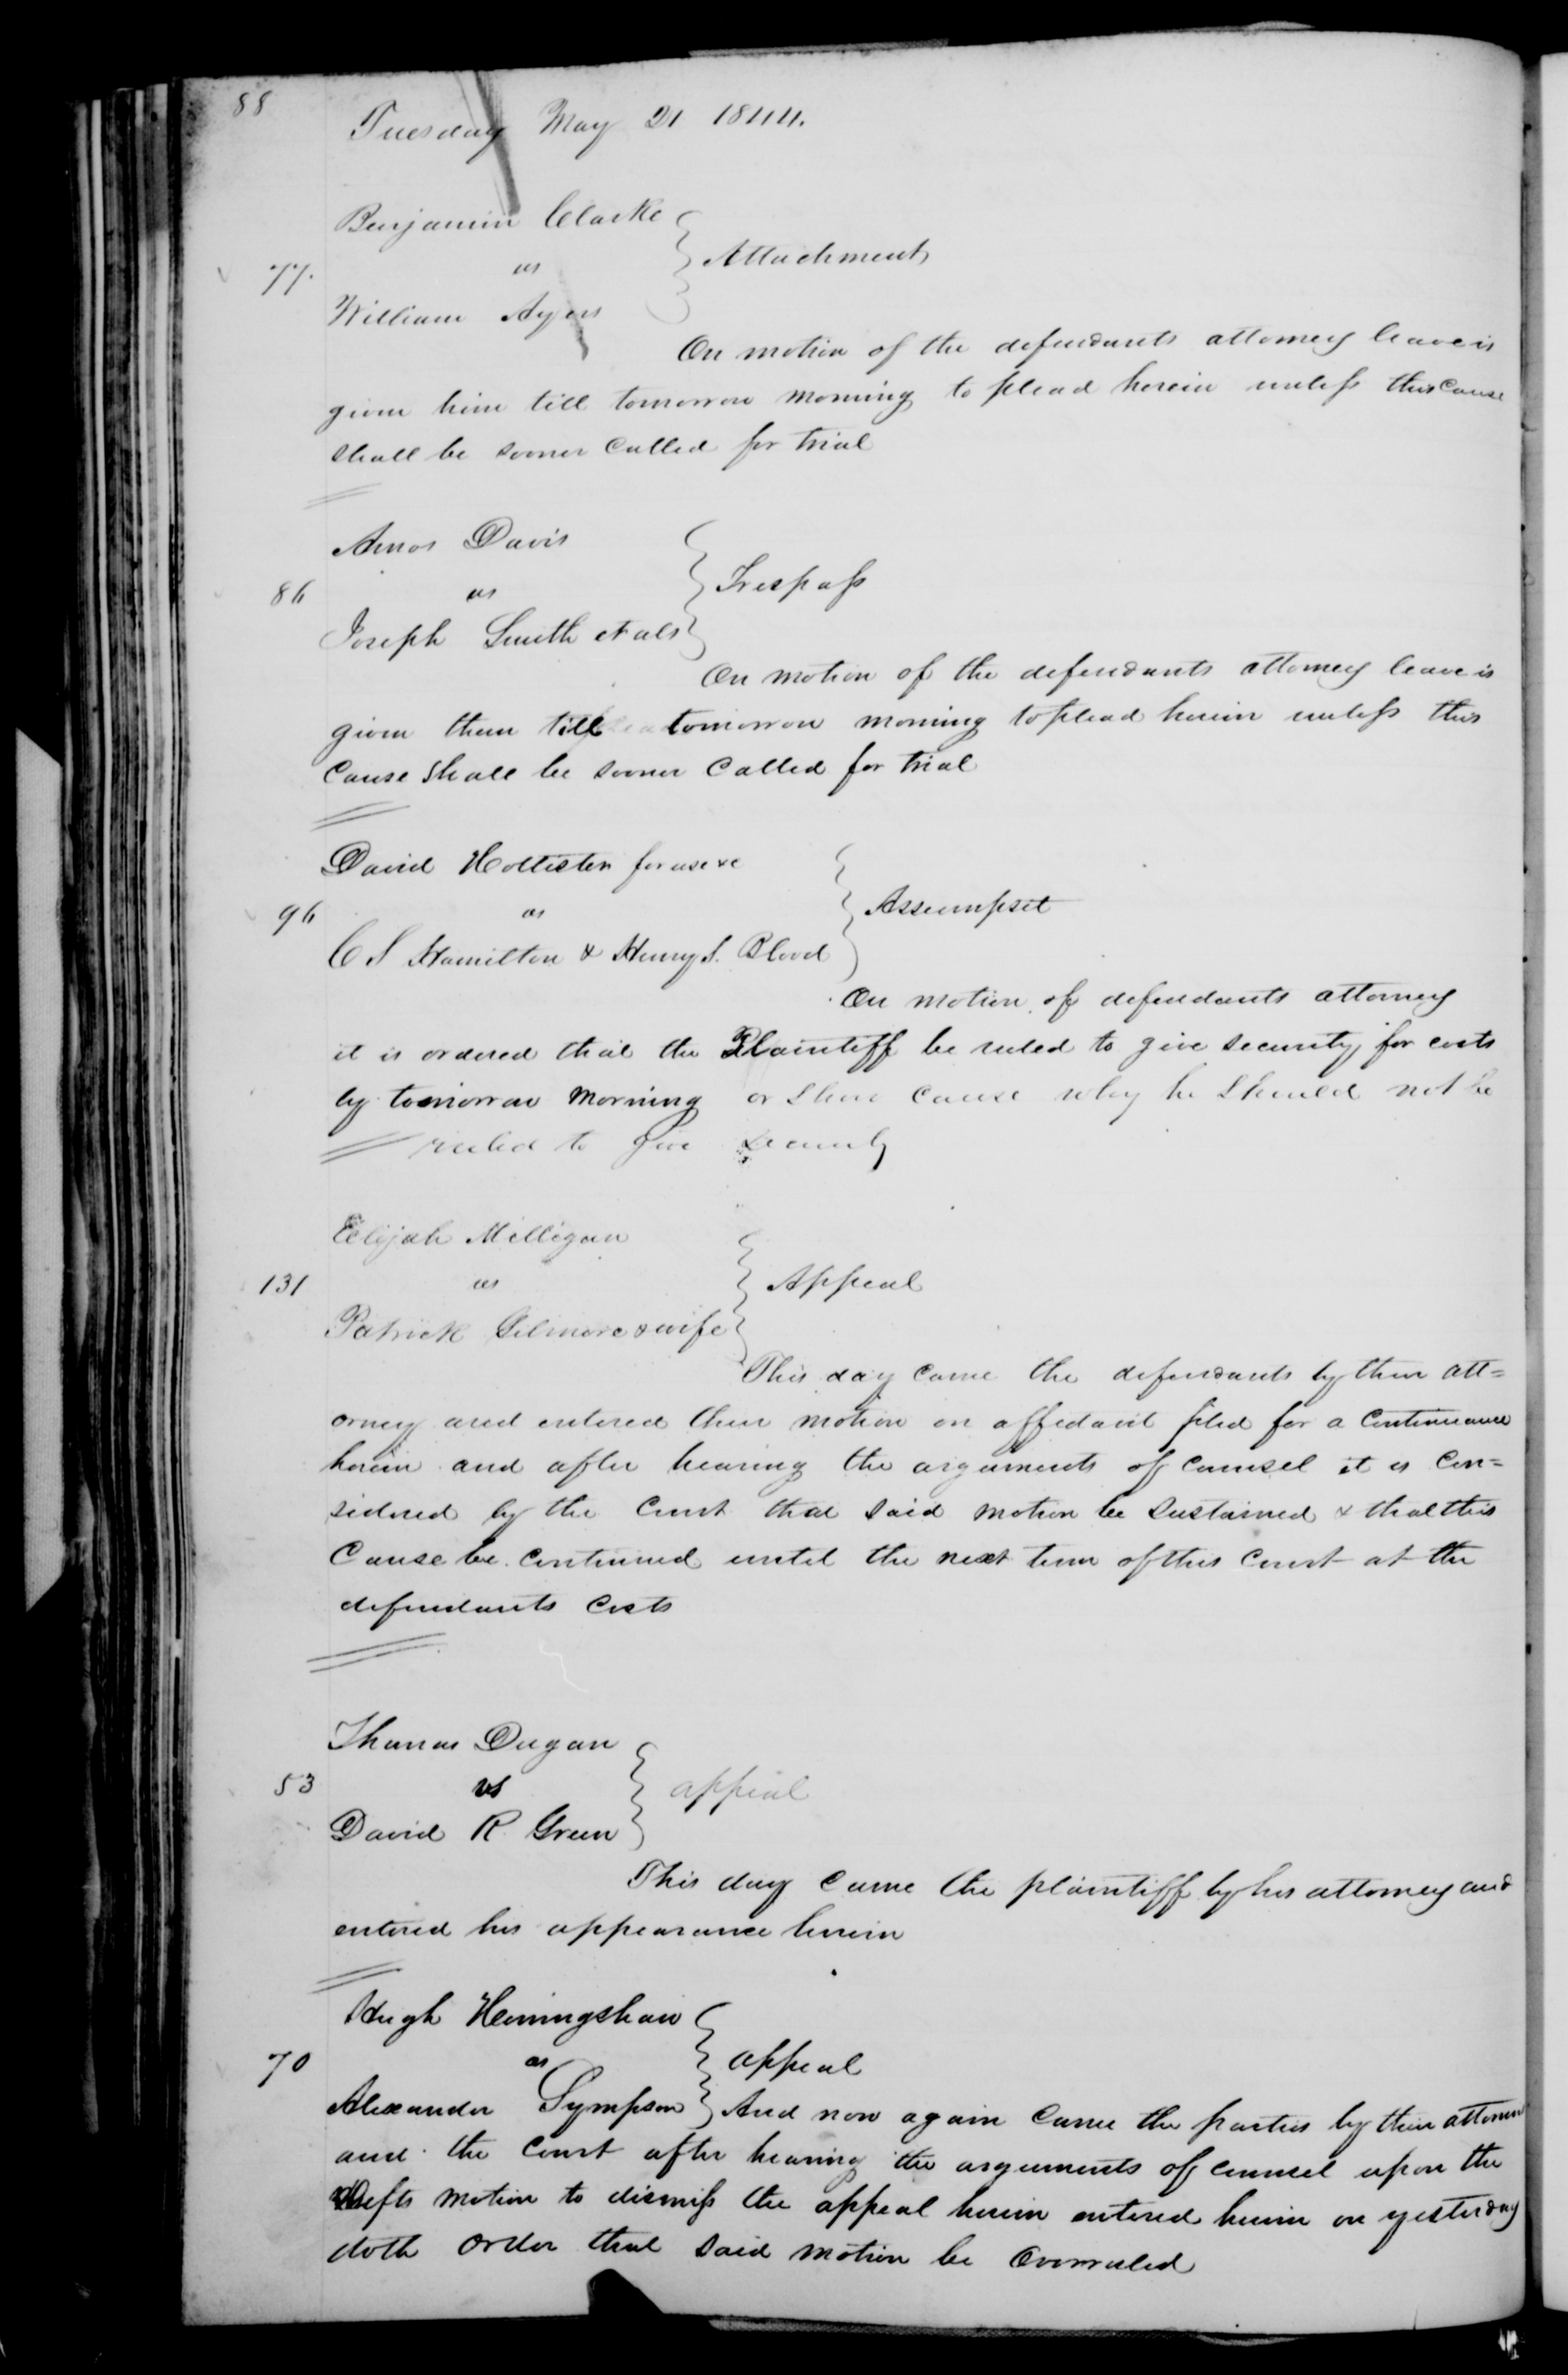 88
Tuesday May 21 1844.
Benjamin Clarke
77. vs } Attachment
William Ayers
On motion of the defendants attorney leave is
given him till tomorrow morning to plead herein unless this Cause
shall be sooner Called for trial
Amos Davis
86 vs } Trespass
Joseph Smith et als
On motion of the defendants attorney leave is
given them till tomorrow morning to plead herein unless this
Cause Shall be sooner Called for trial
David Hollister for use &c
96 vs } Assumpsit
C S Hamilton & Henry S. Blood
On motion of defendants attorney
it is ordered that the Plaintiff be ruled to give security for costs
by tomorrow morning or Shew Cause why he Should not be
ruled to give Security
Elijah Milligan
131 vs } Appeal
Patrick Gilmore & wife
This day Came the defendants by their att=
orney and entered their motion on affidavit filed for a Continuance
herein and after hearing the arguments of Counsel it is Con=
sidered by the Court that Said motion be Sustained & that this
Cause be Continued until the next term of this Court at the
defendants Costs
Thomas Dugan
53 vs } appeal
David R Green
This day Came the plaintiff by his attorney and
entered his appearance herein
Hugh Henningshaw
70 vs } appeal
Alexander Sympson } And now again Came the parties by their attorney
and the Court after hearing the arguments of Counsel upon the
Defts motion to dismiss the appeal herein entered herein on yesterday
doth Order that Said motion be Overruled